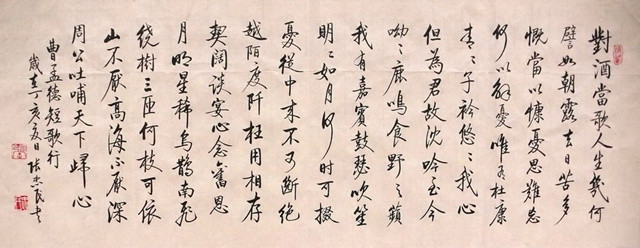 對酒當歌人生幾何
譬如朝露去日苦多
慨當以慷憂思難忘
何以解憂唯有杜康
青々子衿悠々我心
但為君故沈吟至今
呦々鹿鳴食野之蘋
我有嘉賓鼓瑟吹笙
明々如月何时可掇
憂從中来不可斷絕
越陌度阡枉用相存
契闊談宴心念舊恩
月明星稀烏鵲南飛
繞樹三匝何枝可依
山不厭高海不厭深
周公吐哺天下歸心
曹孟德短歌行
歲在丁亥夏日張